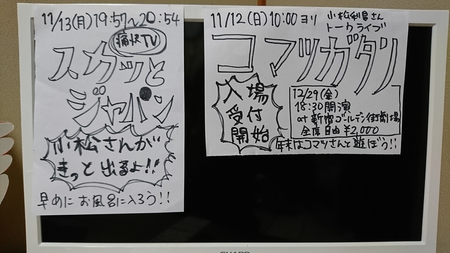 11/13(月)19:57〜20:54
痛快TV
スカッと
ジャパン
小松さんが
きっと出るよ!!
早めにお風呂に入ろう!!
11/12(日)10:00ヨリ
小松利昌さん
トークライブ
コマツガタリ
入場
受付
開始
12/29(金)
18:30開演
at新宿ゴールデン街劇場
全席自由¥2,000
年末はコマツさんと遊ぼう!!
SHARP